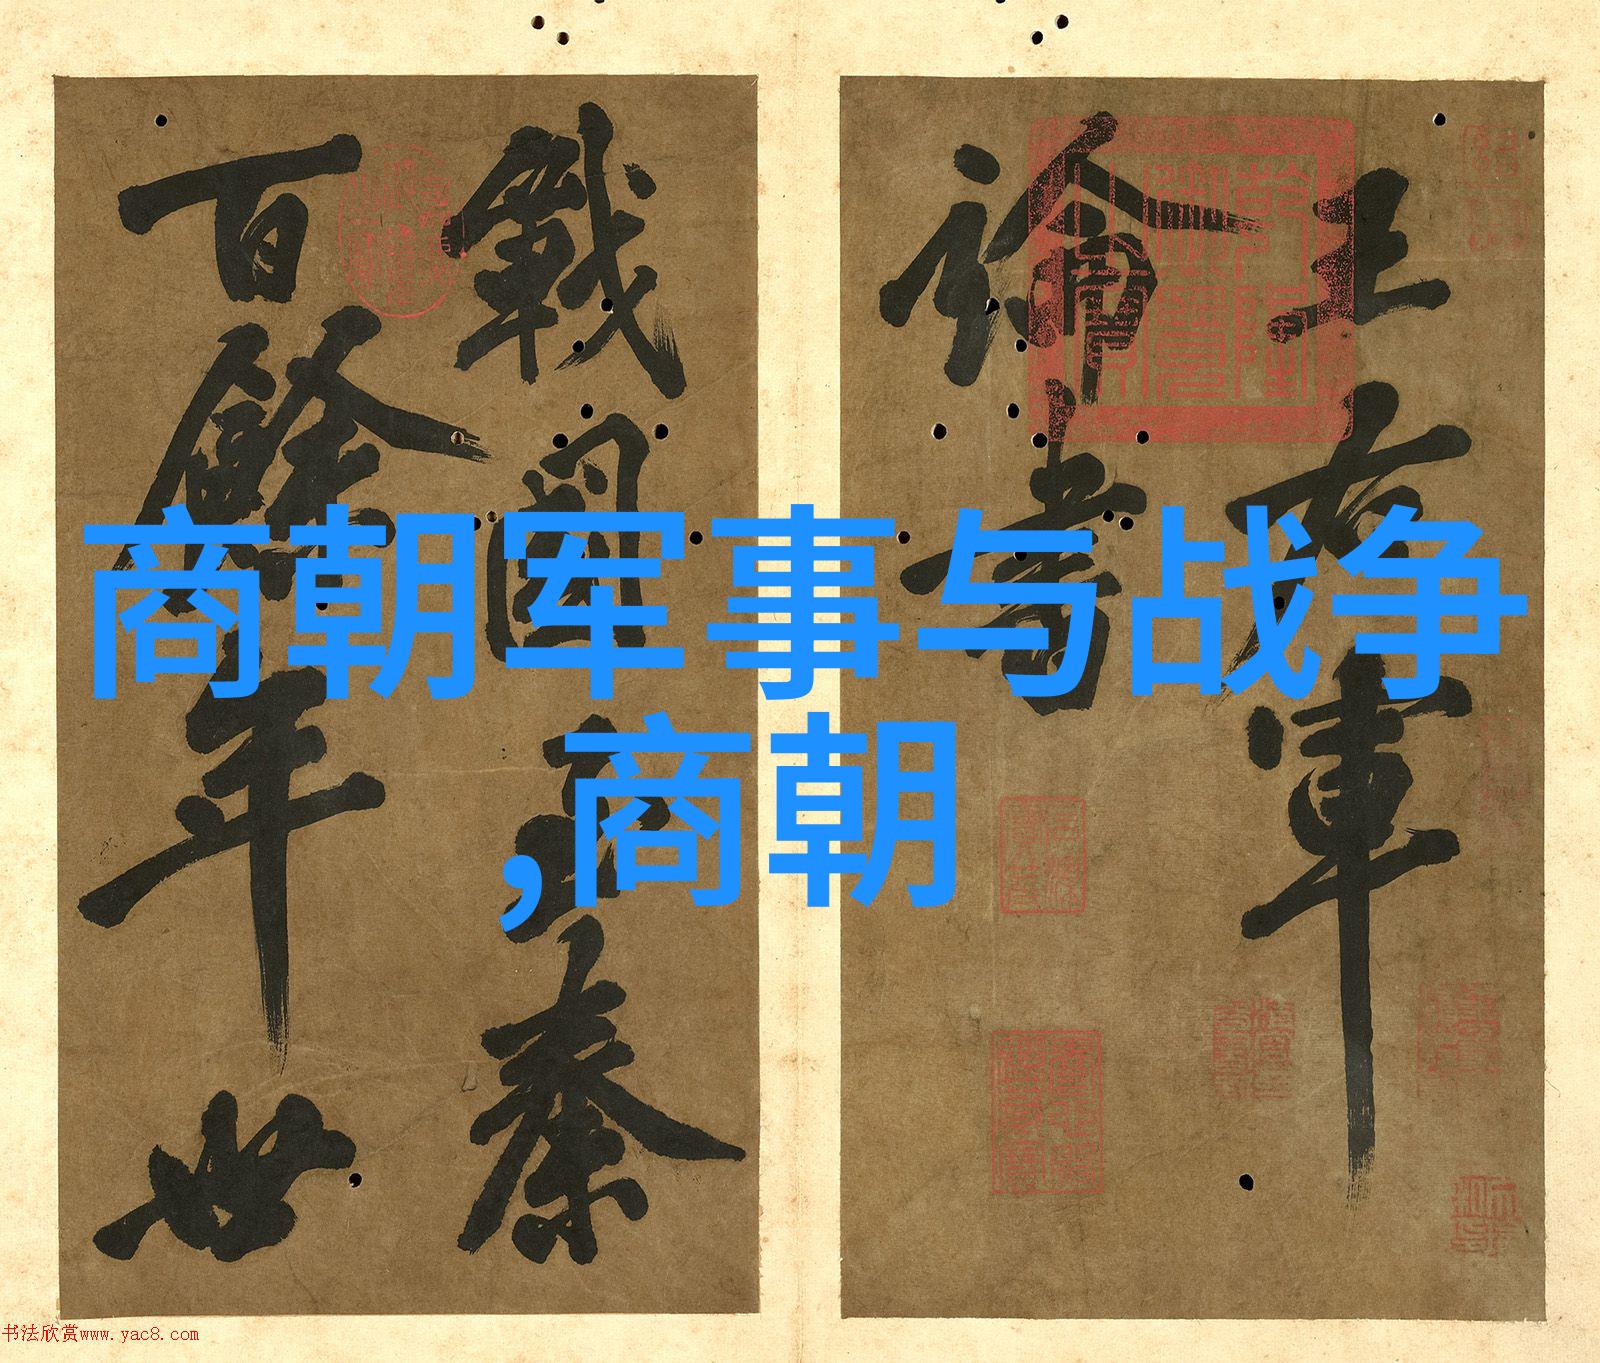 商朝军事与战争
,商朝
王右軍
論書
戰國至秦
百餘年世
乾隆
御覽
之寶
书法欣赏www.yac8.com